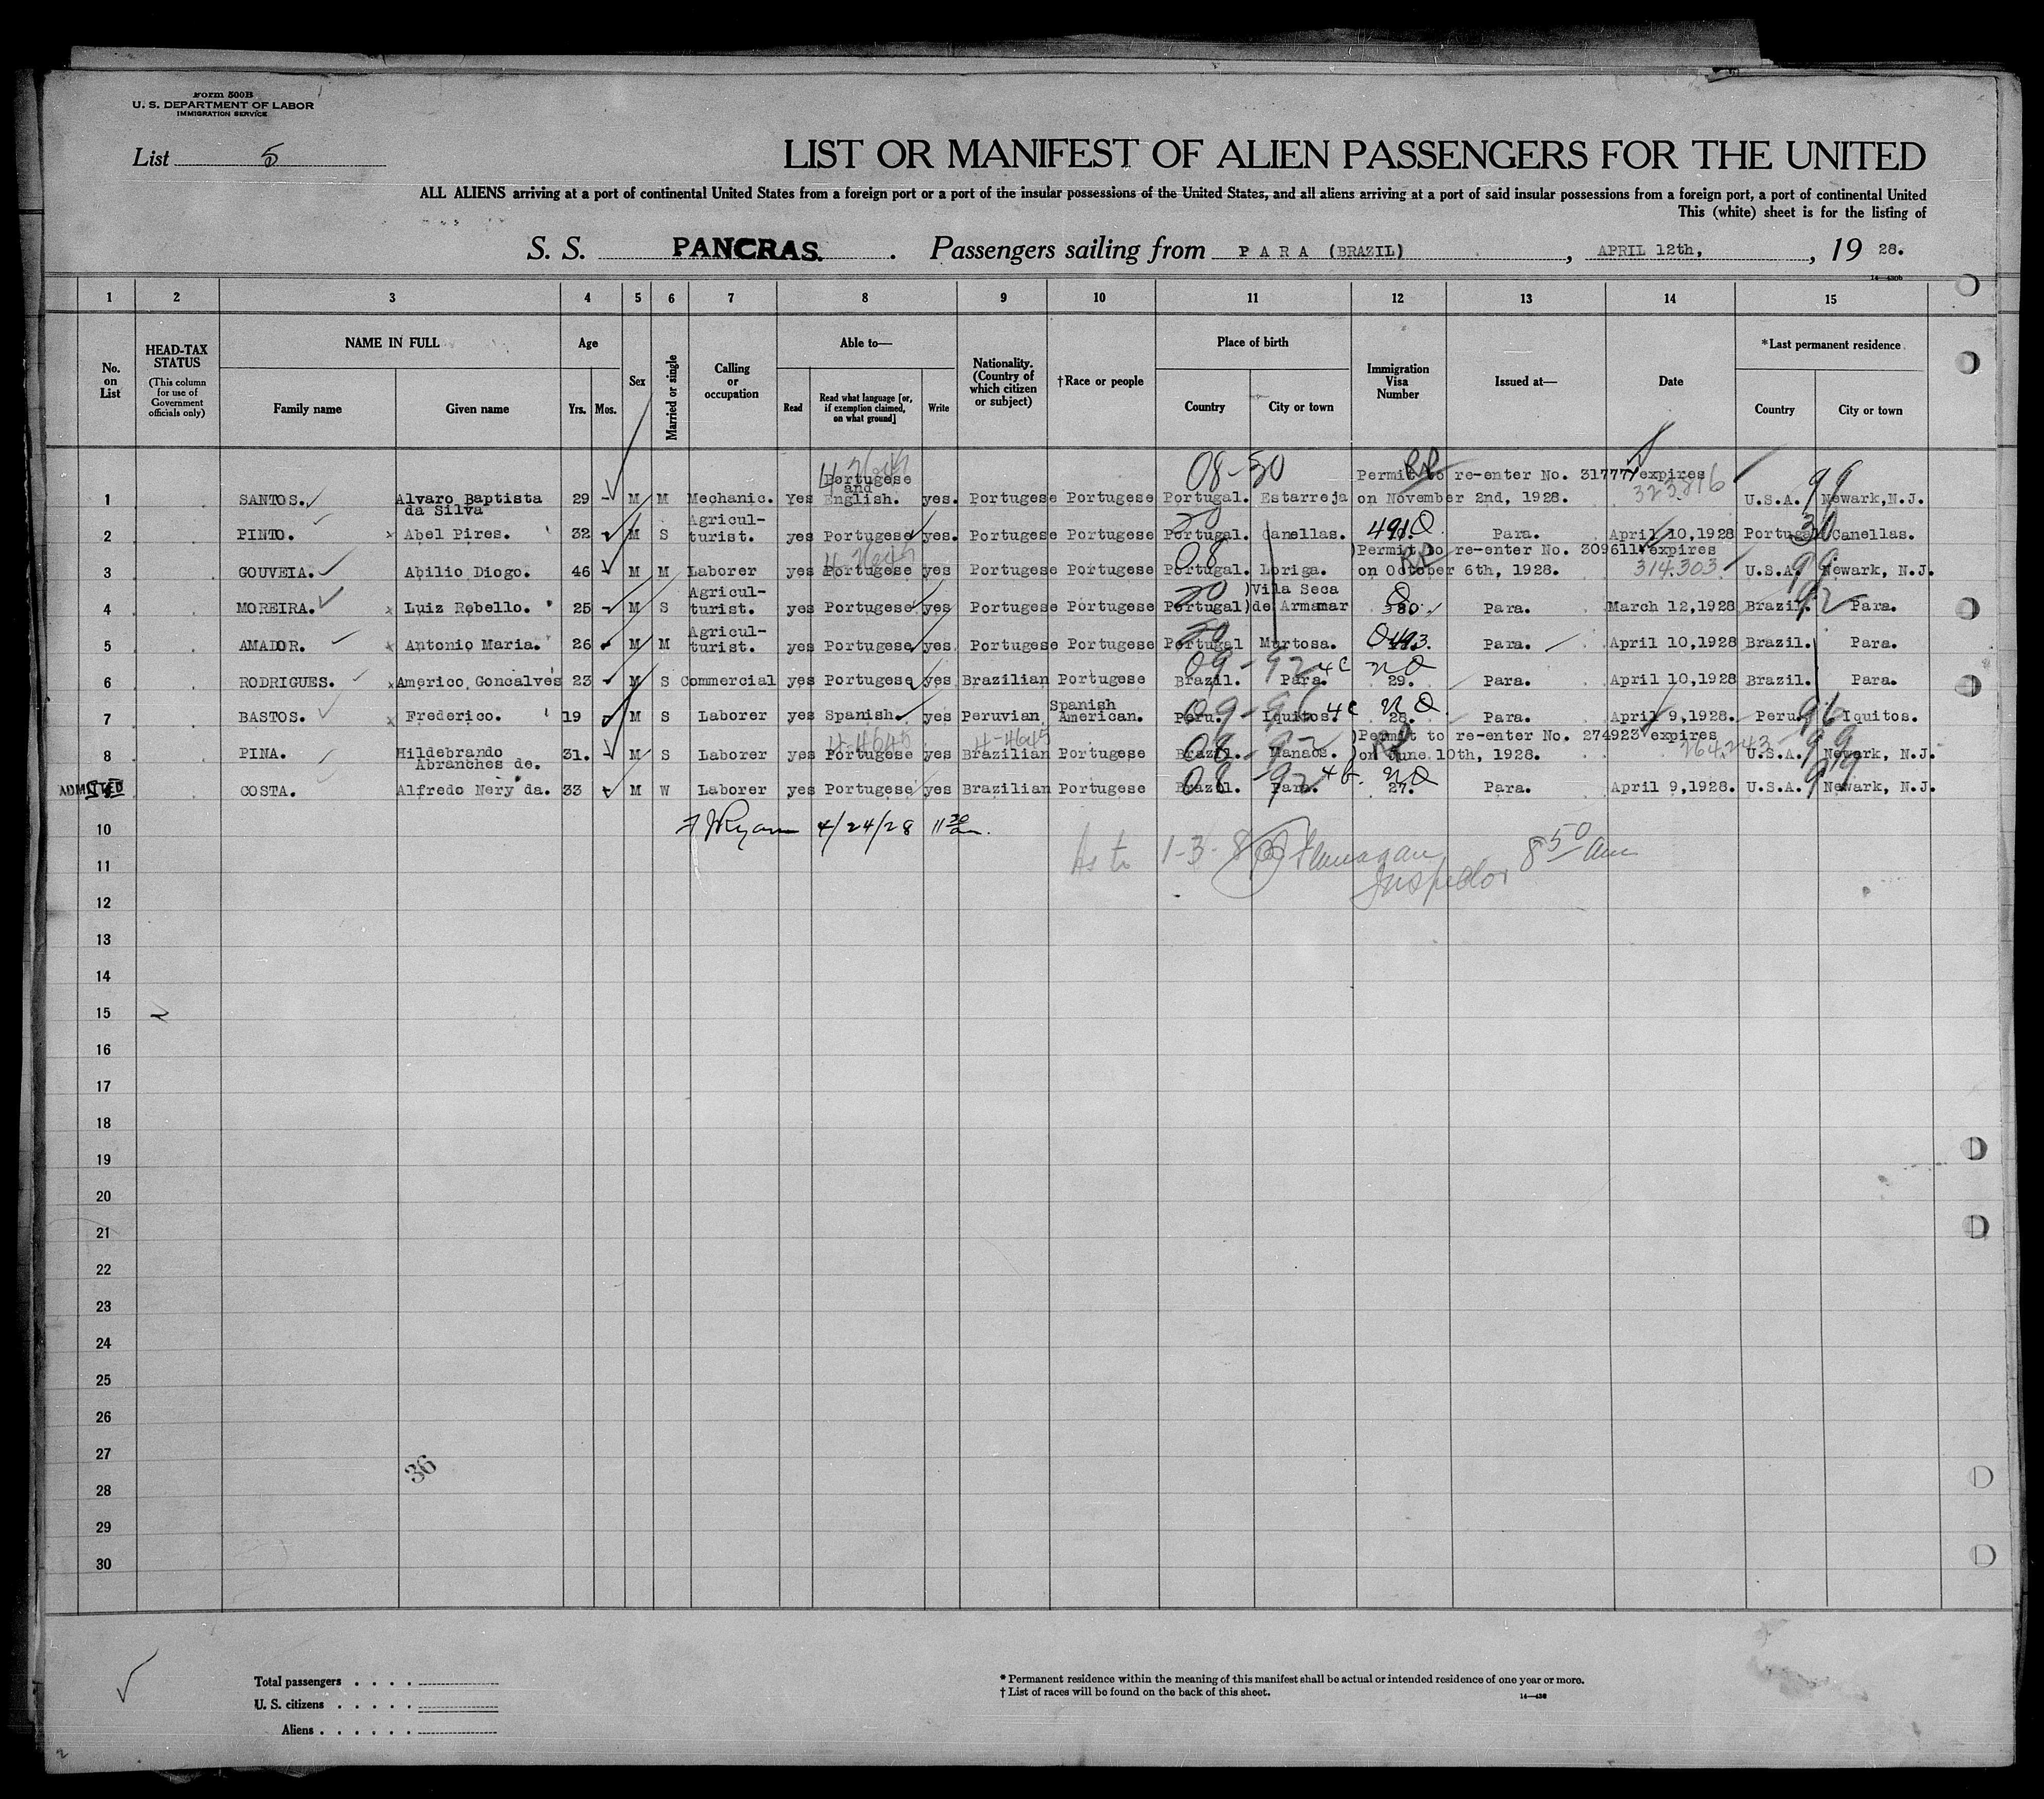 Form 500B
U. S. DEPARTMENT OF LABOR
IMMIGRATION SERVICE
List 5
LIST OR MANIFEST OF ALIEN PASSENGERS FOR THE UNITED
ALL ALIENS arriving at a port of continental United States from a foreign port or a port of the insular possessions of the United States, and all aliens arriving at a port of said insular possessions from a foreign port, a port of continental United
This (white) sheet is for the listing of
S. S. PANCRAS. Passengers sailing from PARA (BRAZIL), APRIL 12th, 19 28.
14—430b
1 2 3 4 5 6 7 8 9 10 11 12 13 14 15
No. on List
HEAD-TAX STATUS (This column for use of Government officials only)
NAME IN FULL
Family name Given name
Age
Yrs. Mos.
Sex
Married or single
Calling or occupation
Able to—
Read Read what language [or, if exemption claimed, on what ground] Write
Nationality. (Country of which citizen or subject)
†Race or people
Place of birth
Country City or town
Immigration Visa Number
Issued at—
Date
*Last permanent residence
Country City or town
08-30 RP 99
1 SANTOS. Alvaro Baptista da Silva 29 M M Mechanic. Yes Portugese and English. yes. Portugese Portugese Portugal. Estarreja Permit to re-enter No. 317771 expires on November 2nd, 1928. 323816 U.S.A. Newark, N.J.
2 PINTO. x Abel Pires. 32 M S Agricul-turist. yes Portugese yes. Portugese Portugese Portugal. Canellas. 491 Q Para. April 10,1928 Portugal 30 Canellas.
3 GOUVEIA. Abilio Diogo. 46 M M Laborer yes Portugese yes Portugese Portugese Portugal. 08 Loriga. )Permit to re-enter No. 309611 expires on October 6th, 1928. RP 314.303 U.S.A. 99 Newark, N.J.
4 MOREIRA. x Luiz Robello. 25 M S Agricul-turist. yes Portugese yes Portugese Portugese Portugal )Vila Seca )de Armamar Q 380. Para. March 12,1928 Brazil. 92 Para.
5 AMADOR. x Antonio Maria. 26 M M Agricul-turist. yes Portugese yes Portugese Portugese Portugal Murtosa. Q 493. Para. April 10,1928 Brazil. Para.
09-92 4c NQ
6 RODRIGUES. x Americo Goncalves 23 M S Commercial yes Portugese yes Brazilian Portugese Brazil. Para. 29. Para. April 10,1928 Brazil. Para.
09-96 4c NQ
7 BASTOS. x Frederico. 19 M S Laborer yes Spanish. yes Peruvian Spanish American. Peru. Iquitos. 28. Para. April 9,1928. Peru. 96 Iquitos.
4-4645 4-4645
8 PINA. Hildebrando Abranches de. 31. M S Laborer yes Portugese yes Brazilian Portugese Brazil. 08-92 Manaos. )Permit to re-enter No. 274923 expires )on June 10th, 1928. RP 264.243 U.S.A. 99 Newark, N.J.
08-92 4b. NQ 99
ADMITTED COSTA. Alfredo Nery da. 33 M W Laborer yes Portugese yes Brazilian Portugese Brazil. Para. 27. Para. April 9,1928. U.S.A. Newark, N.J.
10 Ryan 4/24/28 11 30 am.
As to 1-3-8 Flanagan Inspector 8 50 am
11
12
13
14
15
16
17
18
19
20
21
22
23
24
25
26
27
36
28
29
30
Total passengers . . . .
U. S. citizens . . . . .
Aliens . . . . . .
* Permanent residence within the meaning of this manifest shall be actual or intended residence of one year or more.
† List of races will be found on the back of this sheet.
14—430